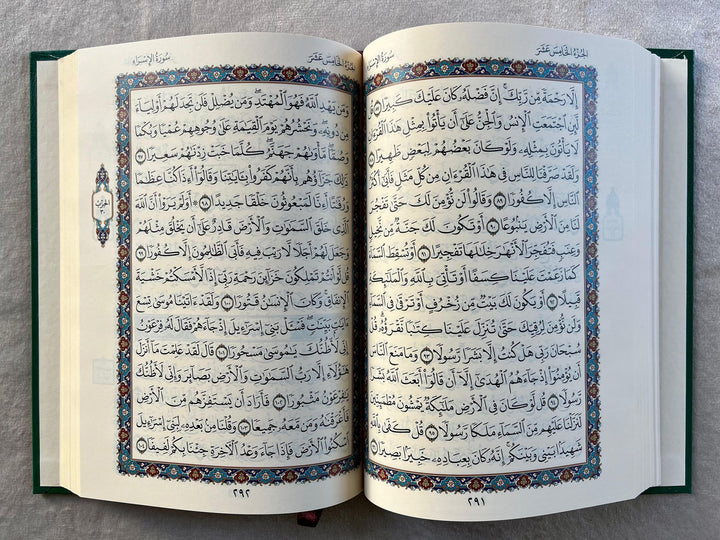 الجُزْءُ الخَامِسَ عَشَرَ
سُورَةُ الإِسْرَاءِ
إِلَّا رَحْمَةً مِّن رَّبِّكَۚ إِنَّ فَضْلَهُۥ كَانَ عَلَيْكَ كَبِيرًا ٨٧ قُل
لَّئِنِ ٱجْتَمَعَتِ ٱلْإِنسُ وَٱلْجِنُّ عَلَىٰٓ أَن يَأْتُوا۟ بِمِثْلِ هَٰذَا ٱلْقُرْءَانِ
لَا يَأْتُونَ بِمِثْلِهِۦ وَلَوْ كَانَ بَعْضُهُمْ لِبَعْضٍ ظَهِيرًا ٨٨
وَلَقَدْ صَرَّفْنَا لِلنَّاسِ فِى هَٰذَا ٱلْقُرْءَانِ مِن كُلِّ مَثَلٍ فَأَبَىٰٓ أَكْثَرُ
ٱلنَّاسِ إِلَّا كُفُورًا ٨٩ وَقَالُوا۟ لَن نُّؤْمِنَ لَكَ حَتَّىٰ تَفْجُرَ
لَنَا مِنَ ٱلْأَرْضِ يَنۢبُوعًا ٩٠ أَوْ تَكُونَ لَكَ جَنَّةٌ مِّن نَّخِيلٍ
وَعِنَبٍ فَتُفَجِّرَ ٱلْأَنْهَٰرَ خِلَٰلَهَا تَفْجِيرًا ٩١ أَوْ تُسْقِطَ ٱلسَّمَآءَ
كَمَا زَعَمْتَ عَلَيْنَا كِسَفًا أَوْ تَأْتِىَ بِٱللَّهِ وَٱلْمَلَٰٓئِكَةِ
قَبِيلًا ٩٢ أَوْ يَكُونَ لَكَ بَيْتٌ مِّن زُخْرُفٍ أَوْ تَرْقَىٰ فِى ٱلسَّمَآءِ
وَلَن نُّؤْمِنَ لِرُقِيِّكَ حَتَّىٰ تُنَزِّلَ عَلَيْنَا كِتَٰبًا نَّقْرَؤُهُۥۗ قُلْ
سُبْحَانَ رَبِّى هَلْ كُنتُ إِلَّا بَشَرًا رَّسُولًا ٩٣ وَمَا مَنَعَ ٱلنَّاسَ
أَن يُؤْمِنُوٓا۟ إِذْ جَآءَهُمُ ٱلْهُدَىٰٓ إِلَّآ أَن قَالُوٓا۟ أَبَعَثَ ٱللَّهُ بَشَرًا
رَّسُولًا ٩٤ قُل لَّوْ كَانَ فِى ٱلْأَرْضِ مَلَٰٓئِكَةٌ يَمْشُونَ مُطْمَئِنِّينَ
لَنَزَّلْنَا عَلَيْهِم مِّنَ ٱلسَّمَآءِ مَلَكًا رَّسُولًا ٩٥ قُلْ كَفَىٰ بِٱللَّهِ
شَهِيدًۢا بَيْنِى وَبَيْنَكُمْۚ إِنَّهُۥ كَانَ بِعِبَادِهِۦ خَبِيرًۢا بَصِيرًا ٩٦
٢٩١
الجُزْءُ الخَامِسَ عَشَرَ
سُورَةُ الإِسْرَاءِ
وَمَن يَهْدِ ٱللَّهُ فَهُوَ ٱلْمُهْتَدِۖ وَمَن يُضْلِلْ فَلَن تَجِدَ لَهُمْ أَوْلِيَآءَ
مِن دُونِهِۦۖ وَنَحْشُرُهُمْ يَوْمَ ٱلْقِيَٰمَةِ عَلَىٰ وُجُوهِهِمْ عُمْيًا وَبُكْمًا
وَصُمًّاۖ مَّأْوَىٰهُمْ جَهَنَّمُۖ كُلَّمَا خَبَتْ زِدْنَٰهُمْ سَعِيرًا ٩٧
ذَٰلِكَ جَزَآؤُهُم بِأَنَّهُمْ كَفَرُوا۟ بِـَٔايَٰتِنَا وَقَالُوٓا۟ أَءِذَا كُنَّا عِظَٰمًا
وَرُفَٰتًا أَءِنَّا لَمَبْعُوثُونَ خَلْقًا جَدِيدًا ٩٨ ۞ أَوَلَمْ يَرَوْا۟ أَنَّ ٱللَّهَ
ٱلَّذِى خَلَقَ ٱلسَّمَٰوَٰتِ وَٱلْأَرْضَ قَادِرٌ عَلَىٰٓ أَن يَخْلُقَ مِثْلَهُمْ
وَجَعَلَ لَهُمْ أَجَلًا لَّا رَيْبَ فِيهِ فَأَبَى ٱلظَّٰلِمُونَ إِلَّا كُفُورًا ٩٩
قُل لَّوْ أَنتُمْ تَمْلِكُونَ خَزَآئِنَ رَحْمَةِ رَبِّىٓ إِذًا لَّأَمْسَكْتُمْ خَشْيَةَ
ٱلْإِنفَاقِۚ وَكَانَ ٱلْإِنسَٰنُ قَتُورًا ١٠٠ وَلَقَدْ ءَاتَيْنَا مُوسَىٰ تِسْعَ
ءَايَٰتٍۭ بَيِّنَٰتٍۖ فَسْـَٔلْ بَنِىٓ إِسْرَٰٓءِيلَ إِذْ جَآءَهُمْ فَقَالَ لَهُۥ فِرْعَوْنُ
إِنِّى لَأَظُنُّكَ يَٰمُوسَىٰ مَسْحُورًا ١٠١ قَالَ لَقَدْ عَلِمْتَ مَآ أَنزَلَ
هَٰٓؤُلَآءِ إِلَّا رَبُّ ٱلسَّمَٰوَٰتِ وَٱلْأَرْضِ بَصَآئِرَ وَإِنِّى لَأَظُنُّكَ
يَٰفِرْعَوْنُ مَثْبُورًا ١٠٢ فَأَرَادَ أَن يَسْتَفِزَّهُم مِّنَ ٱلْأَرْضِ
فَأَغْرَقْنَٰهُ وَمَن مَّعَهُۥ جَمِيعًا ١٠٣ وَقُلْنَا مِنۢ بَعْدِهِۦ لِبَنِىٓ إِسْرَٰٓءِيلَ
ٱسْكُنُوا۟ ٱلْأَرْضَ فَإِذَا جَآءَ وَعْدُ ٱلْءَاخِرَةِ جِئْنَا بِكُمْ لَفِيفًا ١٠٤
الحزب
٣٠
٢٩٢